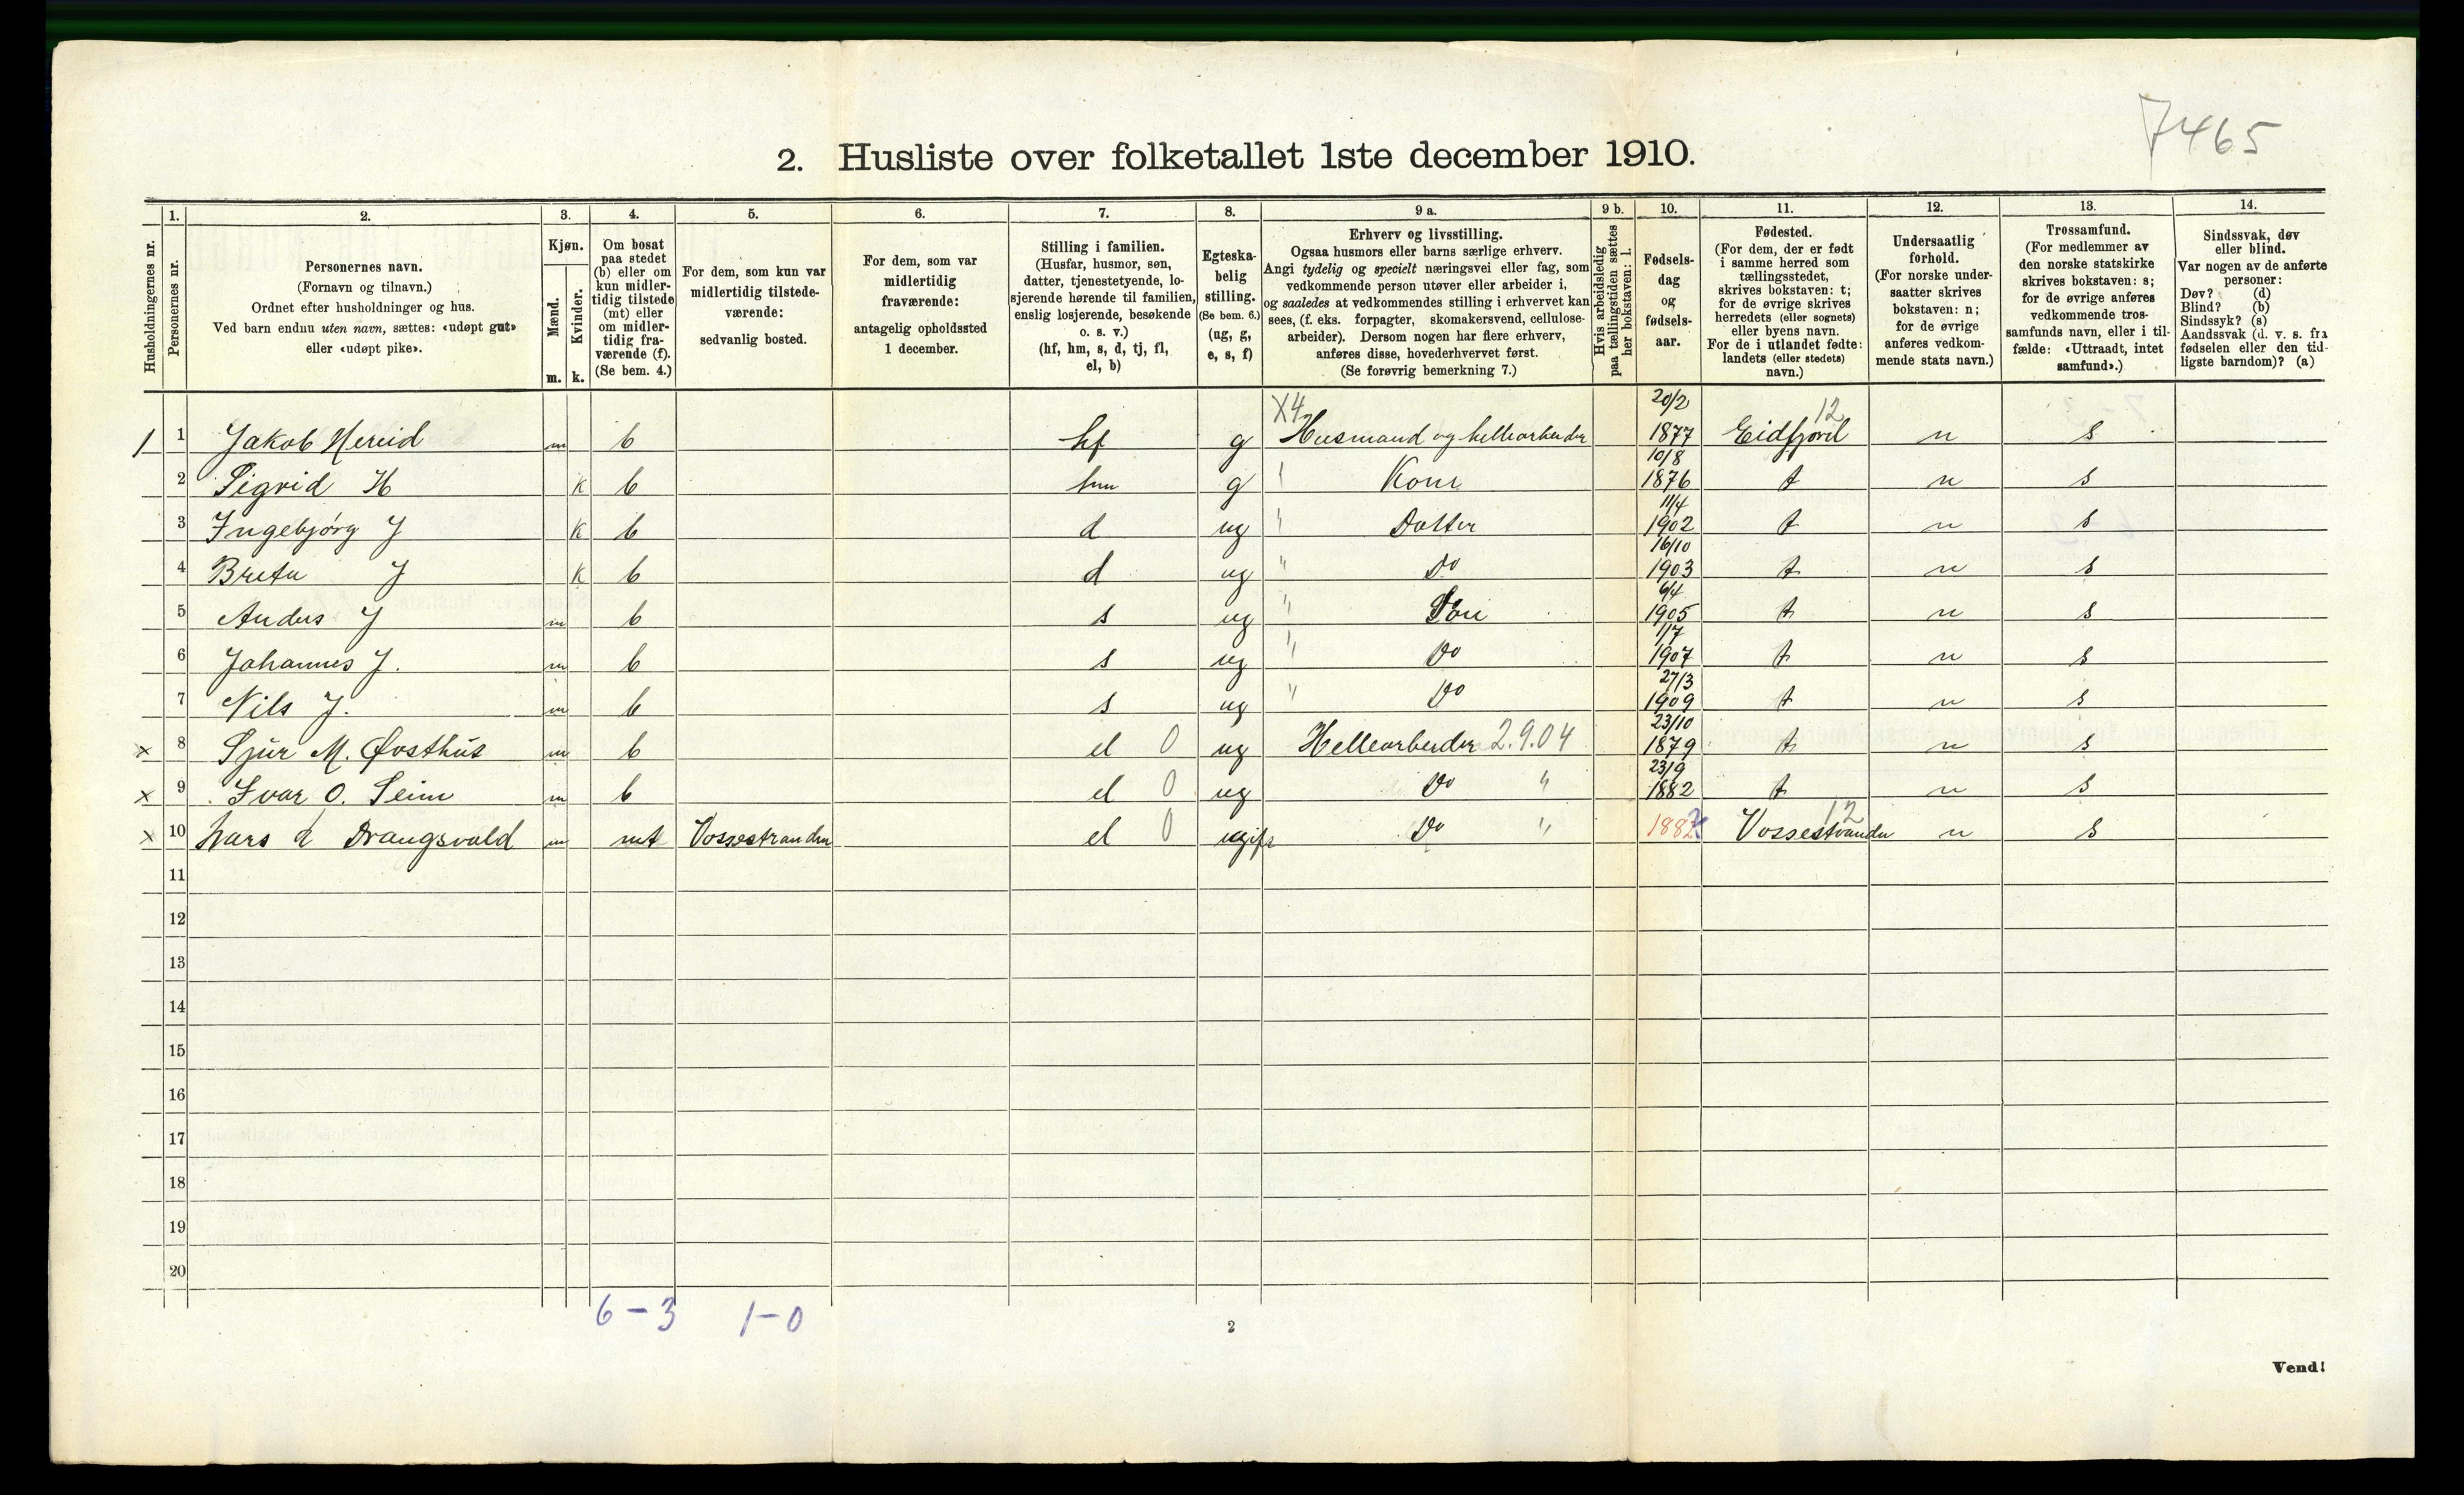 7465
2. Husliste over folketallet 1ste december 1910.
1. 2. 3. 4. 5. 6. 7. 8. 9 a. 9 b. 10. 11. 12. 13. 14.
Husholdningernes nr.
Personernes nr.
Personernes navn.
(Fornavn og tilnavn.)
Ordnet efter husholdninger og hus.
Ved barn endnu uten navn, sættes: «udøpt gut»
eller «udøpt pike».
Kjøn.
Mænd.
Kvinder.
m. k.
Om bosat
paa stedet
(b) eller om
kun midler-
tidig tilstede
(mt) eller
om midler-
tidig fra-
værende (f).
(Se bem. 4.)
For dem, som kun var
midlertidig tilstede-
værende:
sedvanlig bosted.
For dem, som var
midlertidig
fraværende:
antagelig opholdssted
1 december.
Stilling i familien.
(Husfar, husmor, søn,
datter, tjenestetyende, lo-
sjerende hørende til familien,
enslig losjerende, besøkende
o. s. v.)
(hf, hm, s, d, tj, fl,
el, b)
Egteska-
belig
stilling.
(Se bem. 6.)
(ug, g,
e, s, f)
Erhverv og livsstilling.
Ogsaa husmors eller barns særlige erhverv.
Angi tydelig og specielt næringsvei eller fag, som
vedkommende person utøver eller arbeider i,
og saaledes at vedkommendes stilling i erhvervet kan
sees, (f. eks. forpagter, skomakersvend, cellulose-
arbeider). Dersom nogen har flere erhverv,
anføres disse, hovederhvervet først.
(Se forøvrig bemerkning 7.)
Hvis arbeidsledig
paa tællingstiden sættes
her bokstaven: l.
Fødsels-
dag
og
fødsels-
aar.
Fødested.
(For dem, der er født
i samme herred som
tællingsstedet,
skrives bokstaven: t;
for de øvrige skrives
herredets (eller sognets)
eller byens navn.
For de i utlandet fødte:
landets (eller stedets)
navn.)
Undersaatlig
forhold.
(For norske under-
saatter skrives
bokstaven: n;
for de øvrige
anføres vedkom-
mende stats navn.)
Trossamfund.
(For medlemmer av
den norske statskirke
skrives bokstaven: s;
for de øvrige anføres
vedkommende tros-
samfunds navn, eller i til-
fælde: «Uttraadt, intet
samfund».)
Sindssvak, døv
eller blind.
Var nogen av de anførte
personer:
Døv? (d)
Blind? (b)
Sindssyk? (s)
Aandssvak (d. v. s. fra
fødselen eller den tid-
ligste barndom)? (a)
X4 20/2 12
1 1 Jakob Hereid m b hf g Husmand og hellearbeider 1877 Eidfjord n s
10/8
2 Sigrid H k b hm g " Kone 1876 t n s
11/4
3 Ingebjørg J k b d ug " Datter 1902 t n s
16/10
4 Breta J k b d ug " Do 1903 t n s
6/4
5 Anders J m b s ug " Søn 1905 t n s
1/7
6 Johannes J. m b s ug " Do 1907 t n s
27/3
7 Nils J. m b s ug " Do 1909 t n s
23/10
x 8 Sjur M. Øvsthus m b el 0 ug Hellearbeider 2.9.04 1879 t n s
23/9
x 9 Ivar O. Seim m b el 0 ug Do " 1882 t n s
12
x 10 Lars L Drangsvold m mt Vossestranden el 0 ugift Do " 1882 Vossestranden n s
11
12
13
14
15
16
17
18
19
20
6-3 1-0
2
Vend!